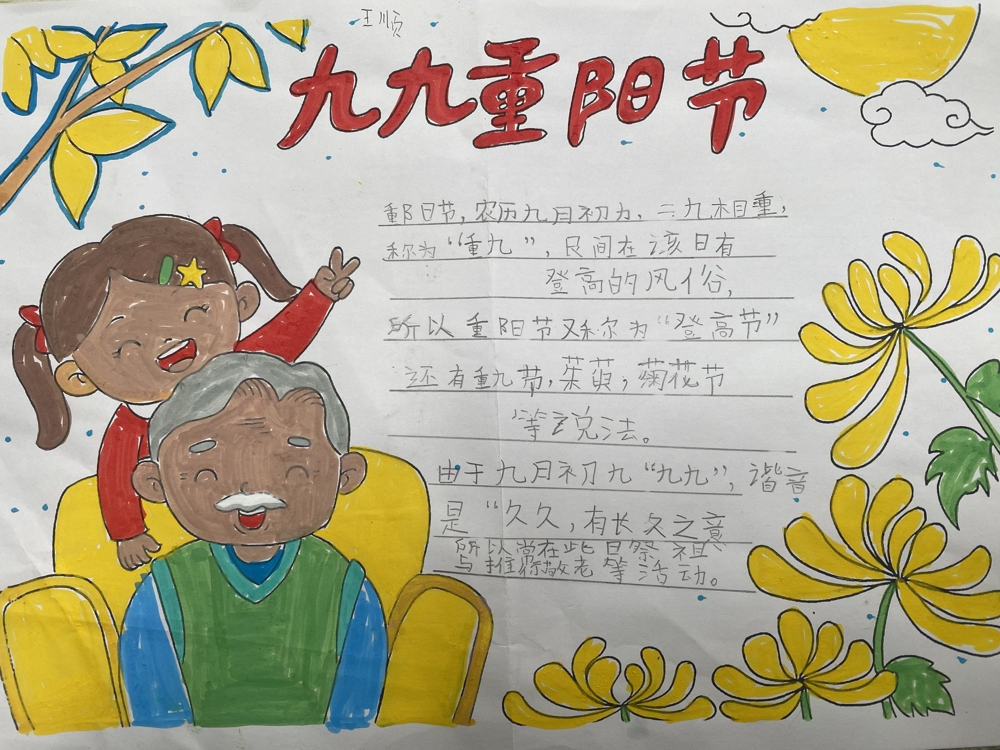 王顺
九九重阳节
重阳日节,农历九月初九,二九相重,
称为“重九”,民间在该日有
登高的风俗,
所以重阳节又称为“登高节”
还有重九节,茱萸,菊花节
等说法。
由于九月初九“九九”,谐音
是“久久,有长久之意
所以常在此日祭祖
与推行敬老等活动。